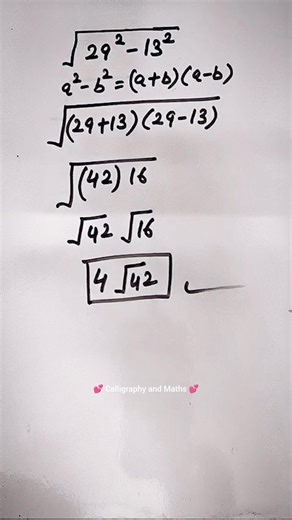 √(29² - 13²)
a² - b² = (a+b) (a-b)
√((29+13) (29-13))
√((42) 16)
√42 √16
4 √42
💕 Calligraphy and Maths 💕